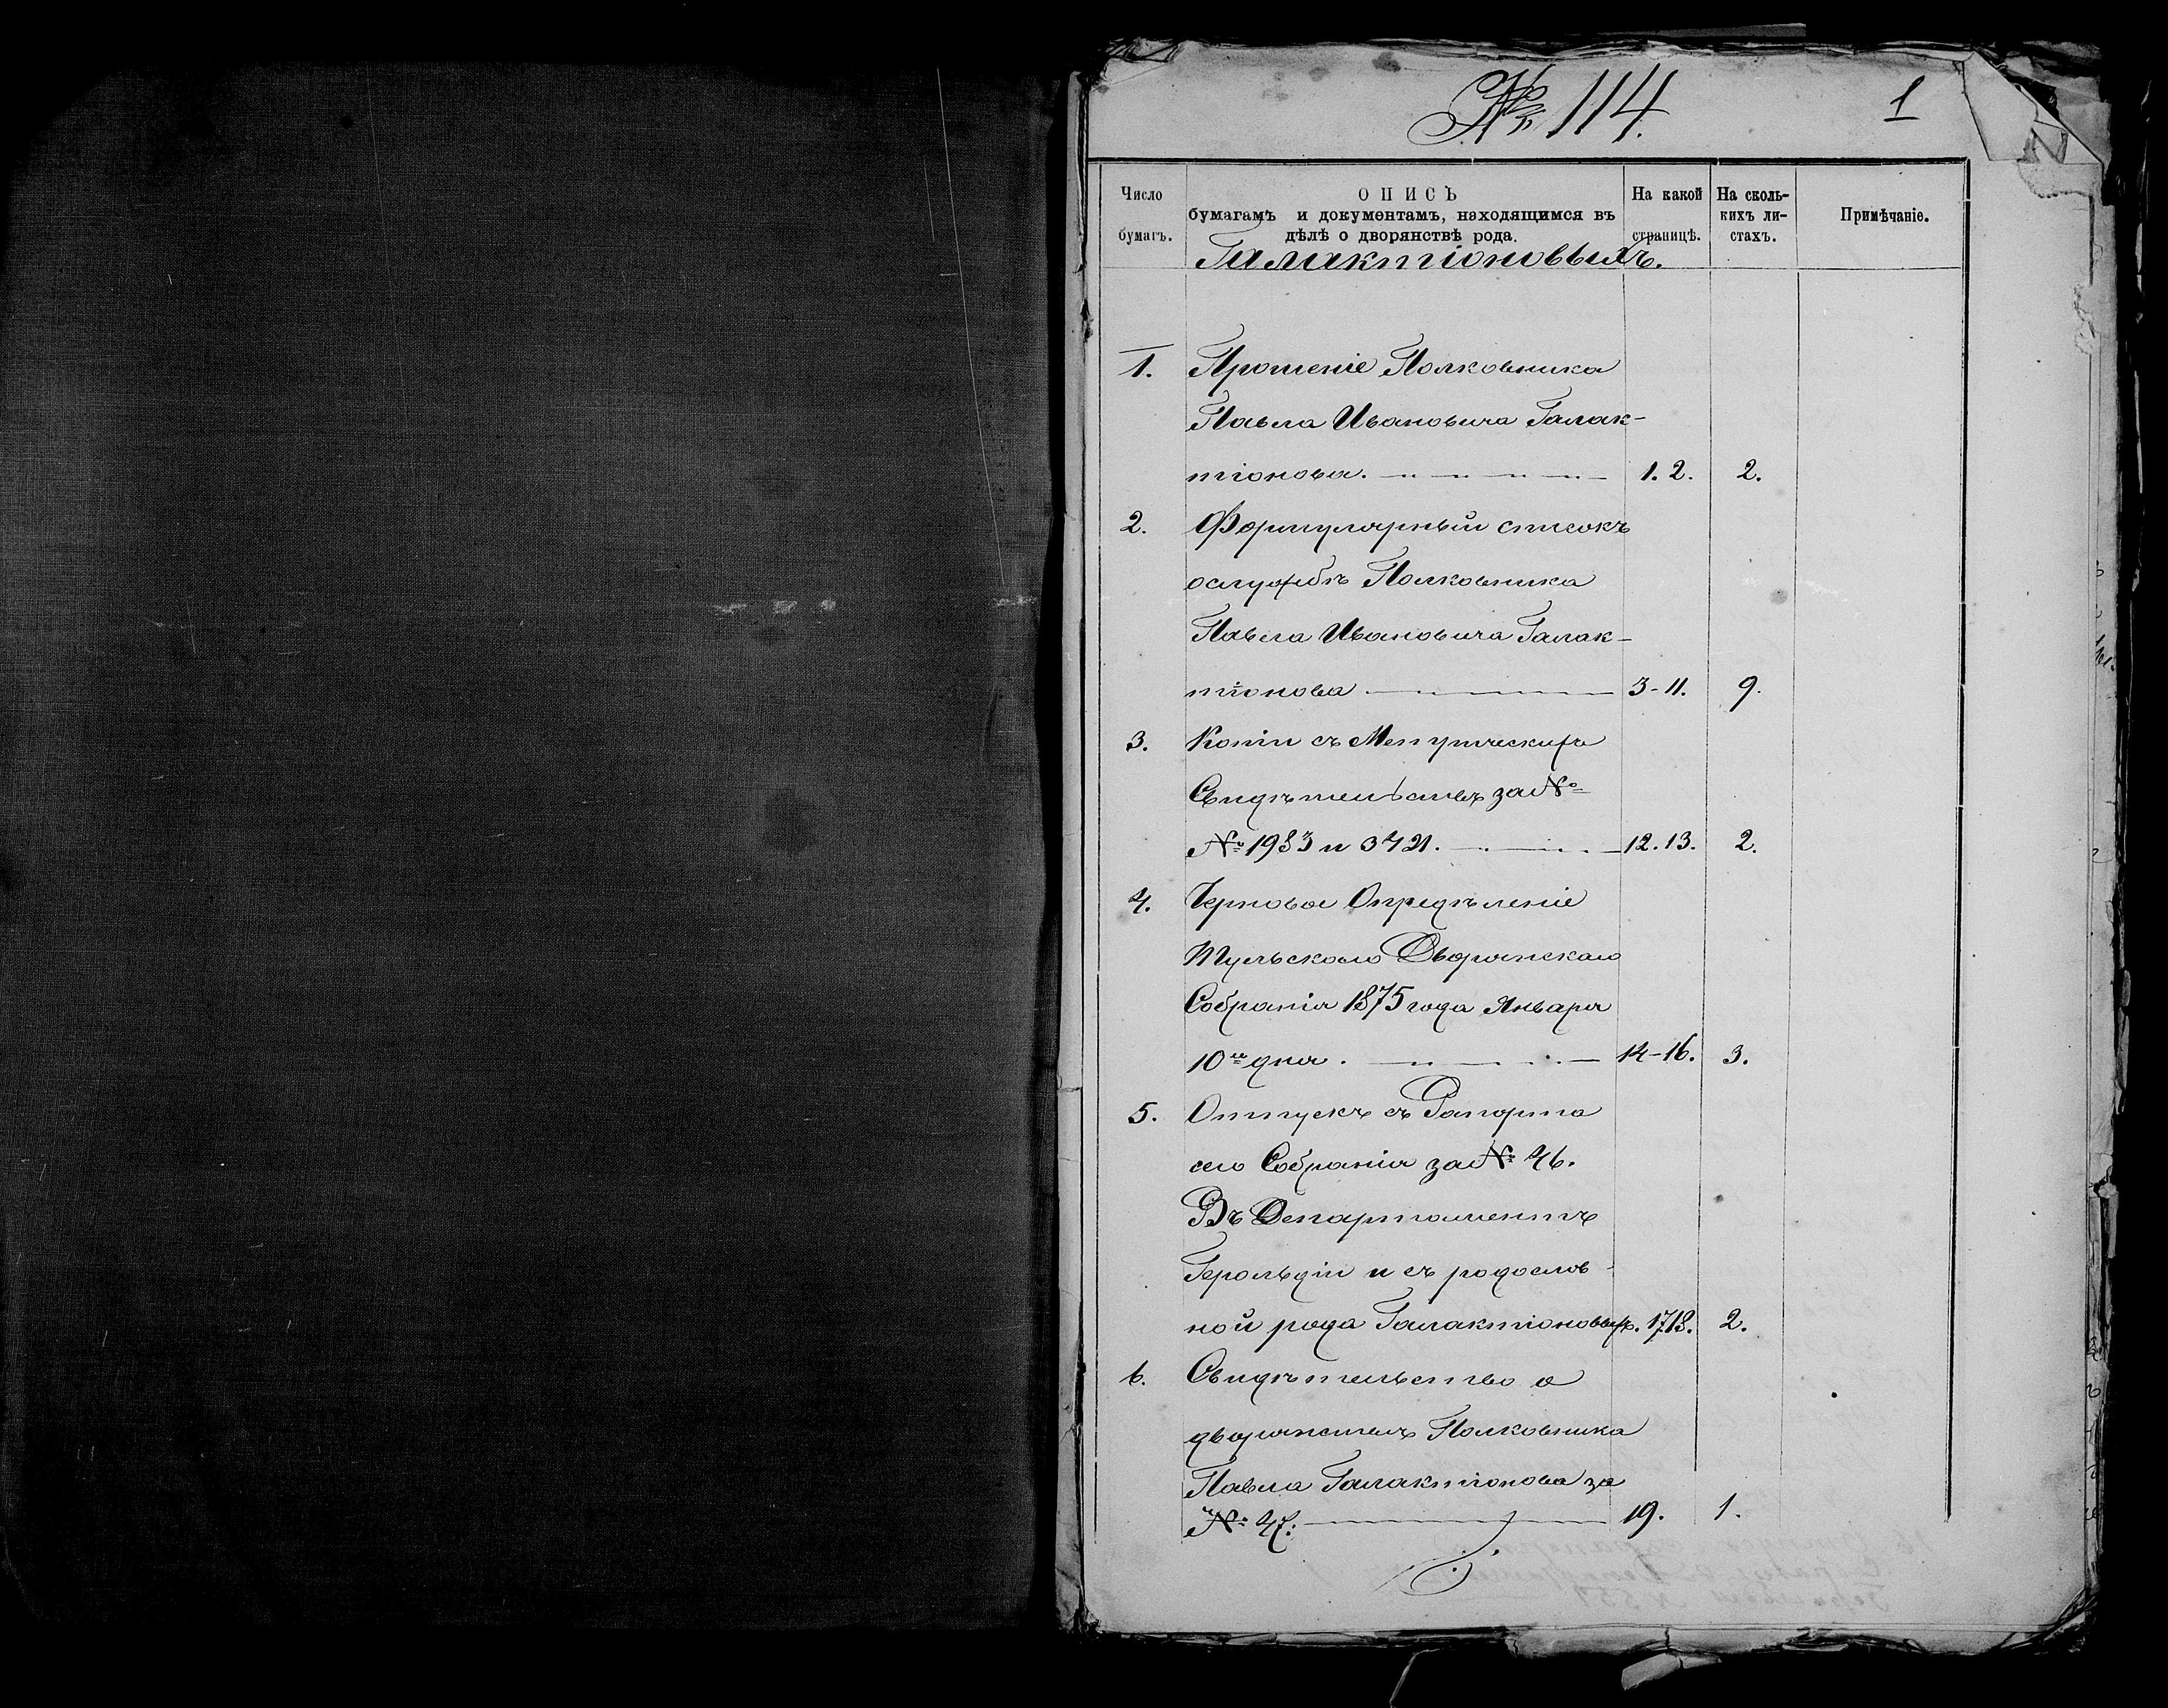 № 114. 1
Число бумагъ.
ОПИСЬ
бумагамъ и документамъ, находящимся въ
дѣлѣ о дворянствѣ рода.
Галактіоновыхъ.
На какой страницѣ.
На сколь-
кихъ ли-
стахъ.
Примѣчаніе.
1. Прошеніе Полковника
Павла Ивановича Галак-
тіонова. 1. 2. 2.
2. Формулярный списокъ
о службѣ Полковника
Павла Ивановича Галак-
тіонова 3-11. 9.
3. Копіи съ Метрическихъ
Свидѣтельствъ за №
№ 1983 и 3421. 12. 13. 2.
4. Черновое Опредѣленіе
Тульскаго Дворянскаго
Собранія 1875 года Января
10го дня. 14-16. 3.
5. Отпускъ съ Рапорта
сего Собранія за № 46.
Въ Департаментъ
Герольдіи и съ родослов-
ной рода Галактіоновыхъ. 17.18. 2.
6. Свидѣтельство о
дворянствѣ Полковника
Павла Галактіонова за
№ 47. 19. 1.